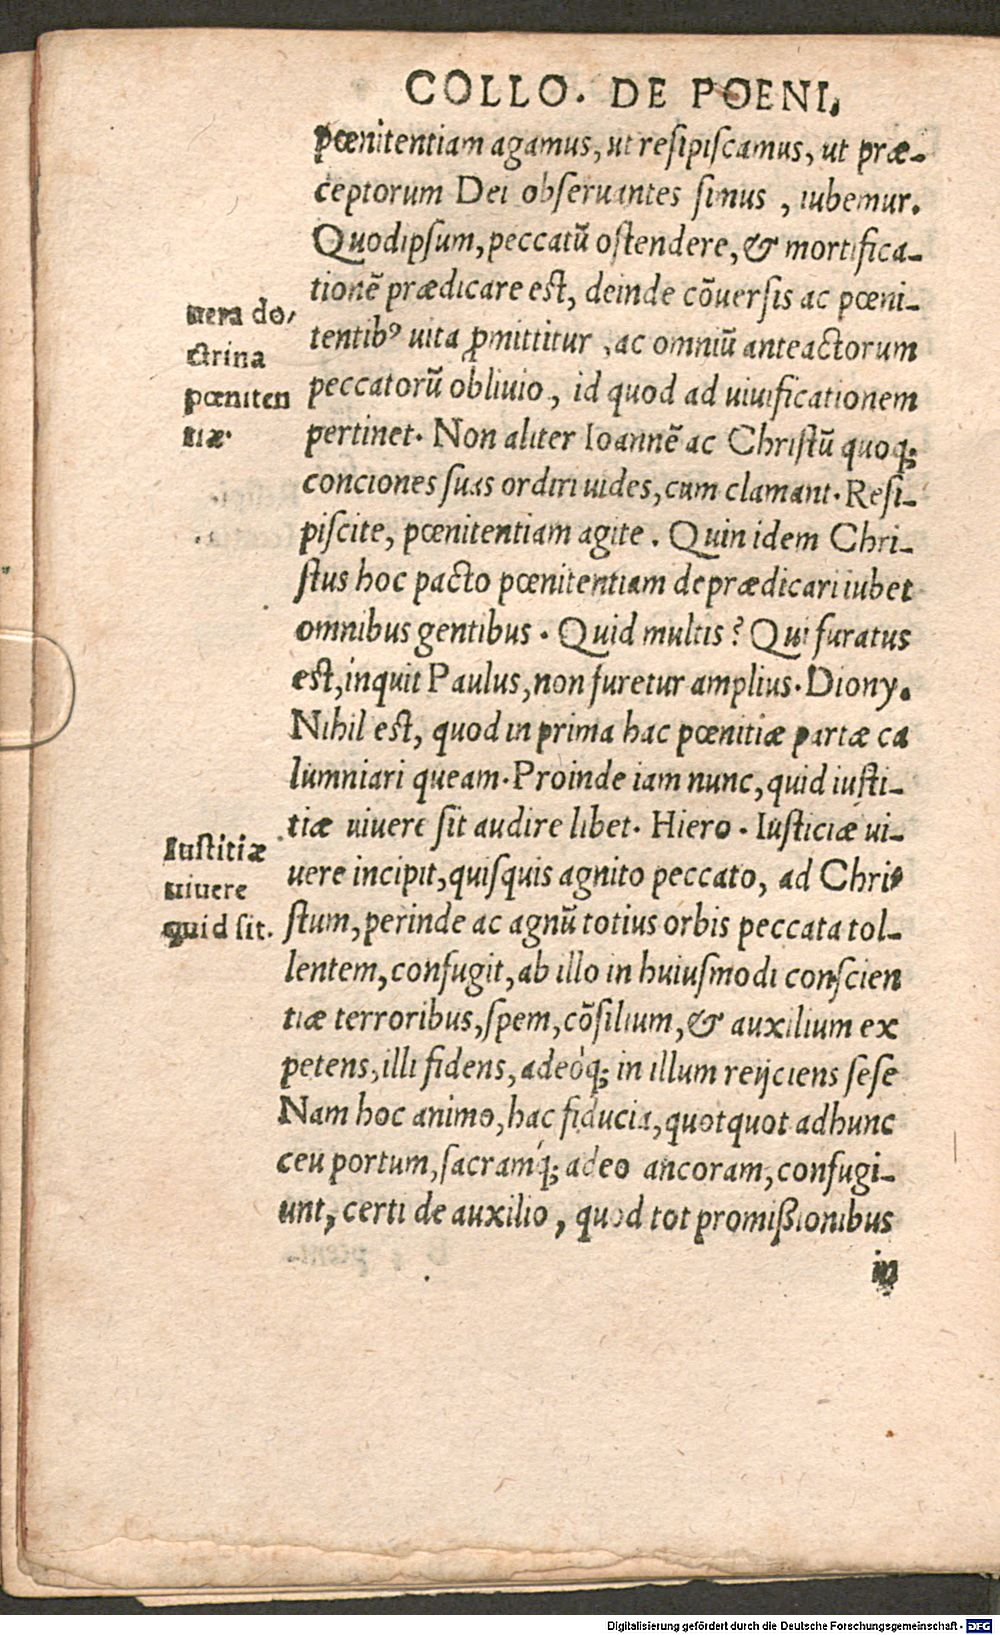 COLLO. DE POENI.
pœnitentiam agamus, ut resipiscamus, ut præ-
ceptorum Dei obseruantes simus , iubemur.
Quodipsum, peccatũ ostendere, & mortifica-
tionẽ prædicare est, deinde cõuersis ac pœni-
tentibꝰ uita ꝓmittitur , ac omniũ anteactorum
peccatorũ obliuio , id quod ad uiuificationem
pertinet. Non aliter Ioannẽ ac Christũ quoq;
conciones suas ordiri uides, cum clamant. Resi-
piscite, pœnitentiam agite. Quin idem Chri-
stus hoc pacto pœnitentiam deprædicari iubet
omnibus gentibus. Quid multis? Qui furatus
est, inquit Paulus, non furetur amplius. Diony.
Nihil est, quod in prima hac pœnitiæ partæ ca
lumniari queam. Proinde iam nunc, quid iusti-
tiæ uiuere sit audire libet. Hiero. Iusticiæ ui-
uere incipit, quisquis agnito peccato, ad Chri-
stum, perinde ac agnũ totius orbis peccata tol-
lentem, confugit, ab illo in huiusmodi conscien
tiæ terroribus, spem, cõsilium, & auxilium ex
petens, illi fidens, adeóq; in illum reijciens sese
Nam hoc animo, hac fiducia, quotquot adhunc
ceu portum, sacramq́; adeo ancoram, confugi-
unt, certi de auxilio, quod tot promißionibus
in
uera do-
ctrina
pœniten
tiæ.
Iustitiæ
uiuere
quid sit.
Digitalisierung gefördert durch die Deutsche Forschungsgemeinschaft - DFG